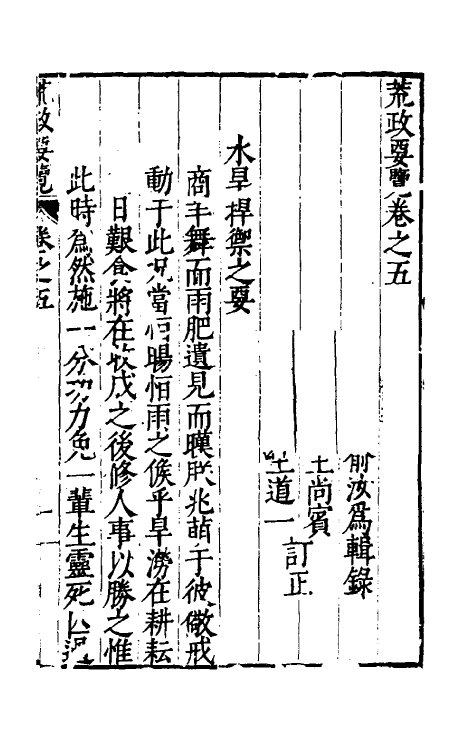 荒政要覽卷之五
俞汝爲輯錄
王尚賓
王道一訂正
水旱捍禦之要
商羊舞而雨肥遺見而暵朕兆萌于彼儆戒
動于此况當恒暘恒雨之候乎旱澇在耕耘
日艱食將在收成之後修人事以勝之惟
此時爲然施一分功力免一輩生靈死
荒政要覽 卷之五